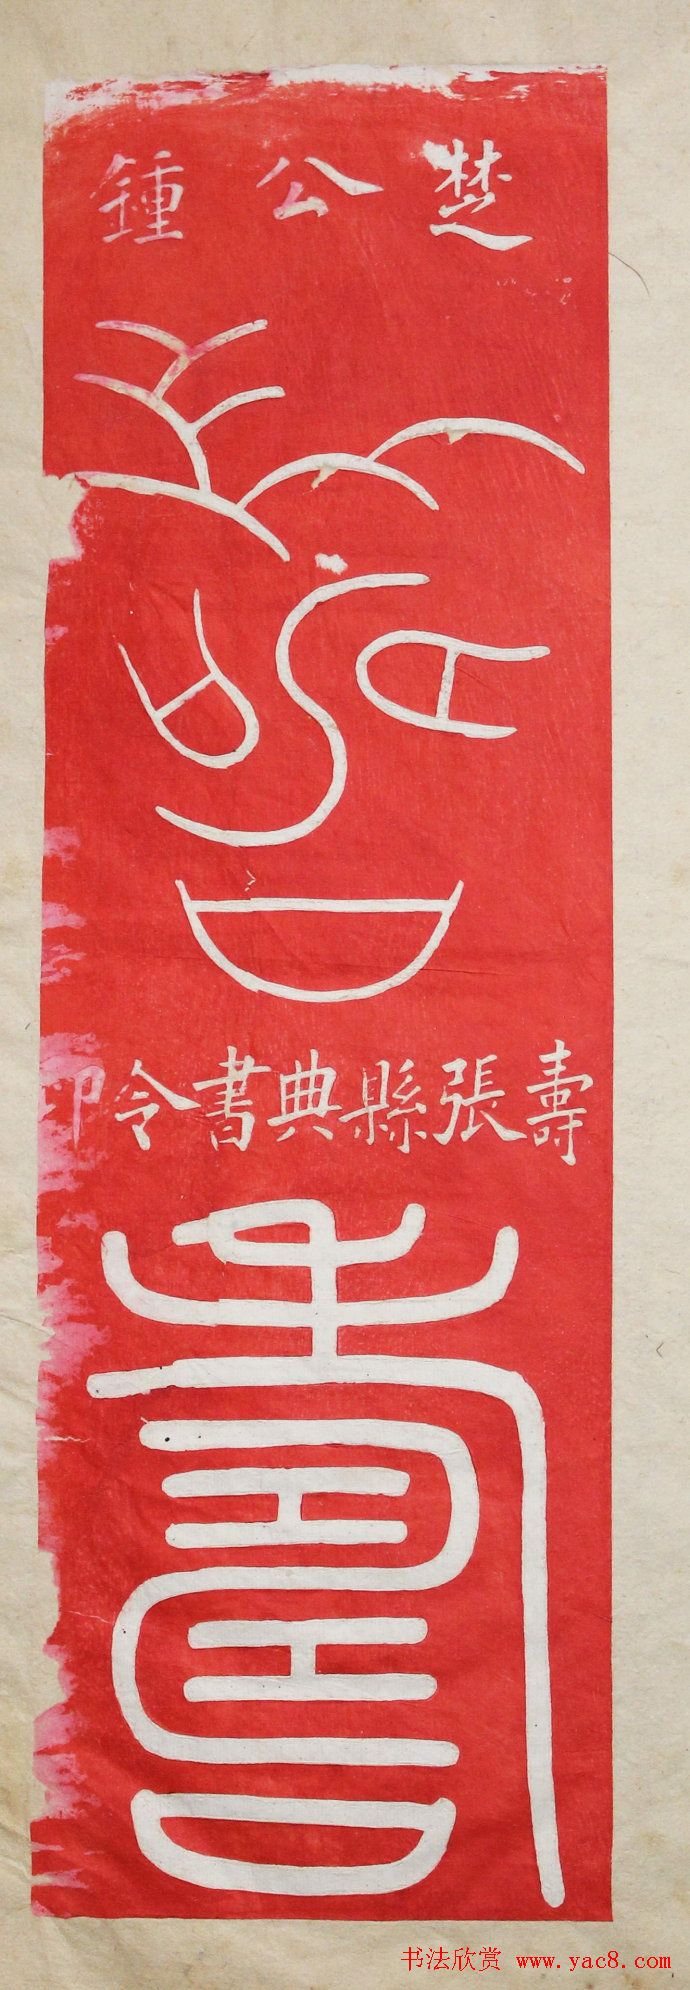 楚公鍾
壽
壽張縣典書令印
壽
书法欣赏 www.yac8.com